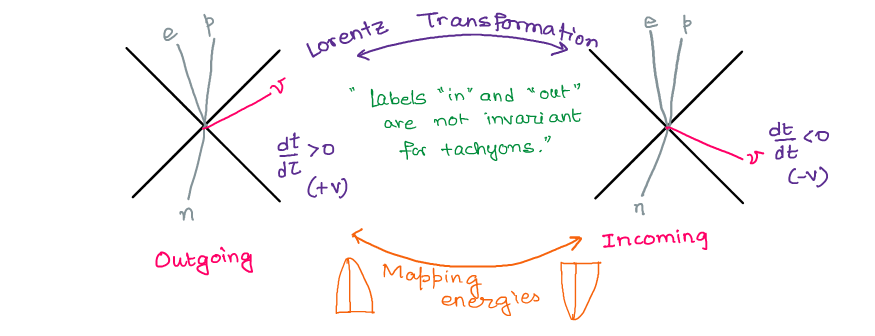 Lorentz Transformation
e p
ν
n
dt/dτ >0
(+v)
Outgoing
"Labels "in" and "out"
are not invariant
for tachyons."
e p
ν
n
dt/dt <0
(-v)
Incoming
Mapping
energies